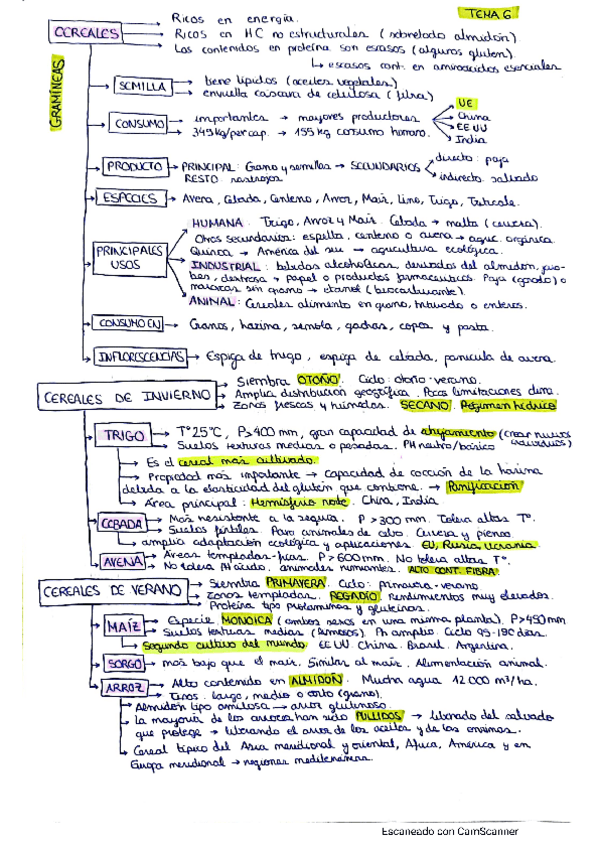 TEMA 6
GRAMÍNEAS
CEREALES
Ricos en energía.
Ricos en HC no estructurales (sobretodo almidón)
Los contenidos en proteína son escasos (algunos gluten).
↳ escasos cont. en aminoácidos esenciales
SEMILLA → tiene lípidos (aceites vegetales)
→ envuelta cáscara de celulosa (fibra)
CONSUMO → importantes → mayores productores → UE
China
EEUU
India
→ 349 kg/per cap. → 155 kg consumo humano.
PRODUCTO → PRINCIPAL: Grano y semillas → SECUNDARIOS → directo: paja
RESTO: rastrojos
indirecto: salvado
ESPECIES → Avena, Cebada, Centeno, Arroz, Maíz, Lino, Trigo, Triticale.
PRINCIPALES USOS
HUMANA: Trigo, Arroz y Maíz. Cebada → malta (cerveza).
Otros secundarios: espelta, centeno o avena → agric. orgánica.
Quinoa → América del sur → agricultura ecológica.
INDUSTRIAL: bebidas alcohólicas, derivados del almidón,
dextrosa → papel o productos farmaceuticos. Paja (ganado) o
mazorcas sin grano → etanol (biocarburante).
ANIMAL: Cereales alimento en grano, triturado o enteros.
CONSUMO EN → Granos, harina, semola, gachas, copos y pasta.
INFLORESCENCIAS → Espiga de trigo, espiga de cebada, panicula de avena.
CEREALES DE INVIERNO → Siembra OTOÑO. Ciclo: otoño-verano.
→ Amplia distribución geográfica. Pocas limitaciones clima.
→ Zonas frescas y húmedas. SECANO. Régimen hídrico
TRIGO → Tº 25ºC, P>400 mm, gran capacidad de ahijamiento (crear nuevos
→ Suelos texturas medias o pesadas. PH neutro/básico
→ Es el cereal más cultivado.
→ Propiedad más importante → Capacidad de cocción de la harina
debida a la elasticidad del glutén que contiene. → Panificación
→ Área principal: Hemisferio norte. China, India.
CEBADA → Más resistente a la sequía. P > 300 mm. Tolera altas Tº.
→ Suelos fértiles. Para animales de cebo. Cerveza y pienso.
→ amplia adaptación ecológica y aplicaciones. EU, Rusia, Ucrania.
AVENA → Áreas templadas-frías. P > 600 mm. No tolera altas Tº.
→ No tolera PH ácido. animales rumiantes. ALTO CONT. FIBRA.
CEREALES DE VERANO → Siembra PRIMAVERA. Ciclo: primavera-verano
→ Zonas templadas. REGADÍO. rendimientos muy elevados.
→ Proteína tipo prolaminas y glutelinas.
MAÍZ → Especie MONOICA (ambos sexos en una misma planta). P>450 mm
→ Suelos texturas medias (limosos). Ph amplio. Ciclo 95-190 días.
→ Segundo cultivo del mundo. EEUU. China. Brasil. Argentina.
SORGO → más bajo que el maíz. Similar al maíz. Alimentación animal.
ARROZ → Alto contenido en ALMIDÓN. Mucha agua 12000 m³/ha.
→ Tipos: largo, medio o corto (grano).
→ Almidón tipo amilosa → arroz glutinoso.
→ La mayoría de los arroces han sido PULIDOS → liberado del salvado
que protege → liberando el arroz de los aceites y de las enzimas.
→ Cereal típico del Asia meridional y oriental, África, América y en
Europa meridional → regiones mediterráneas.
Escaneado con CamScanner